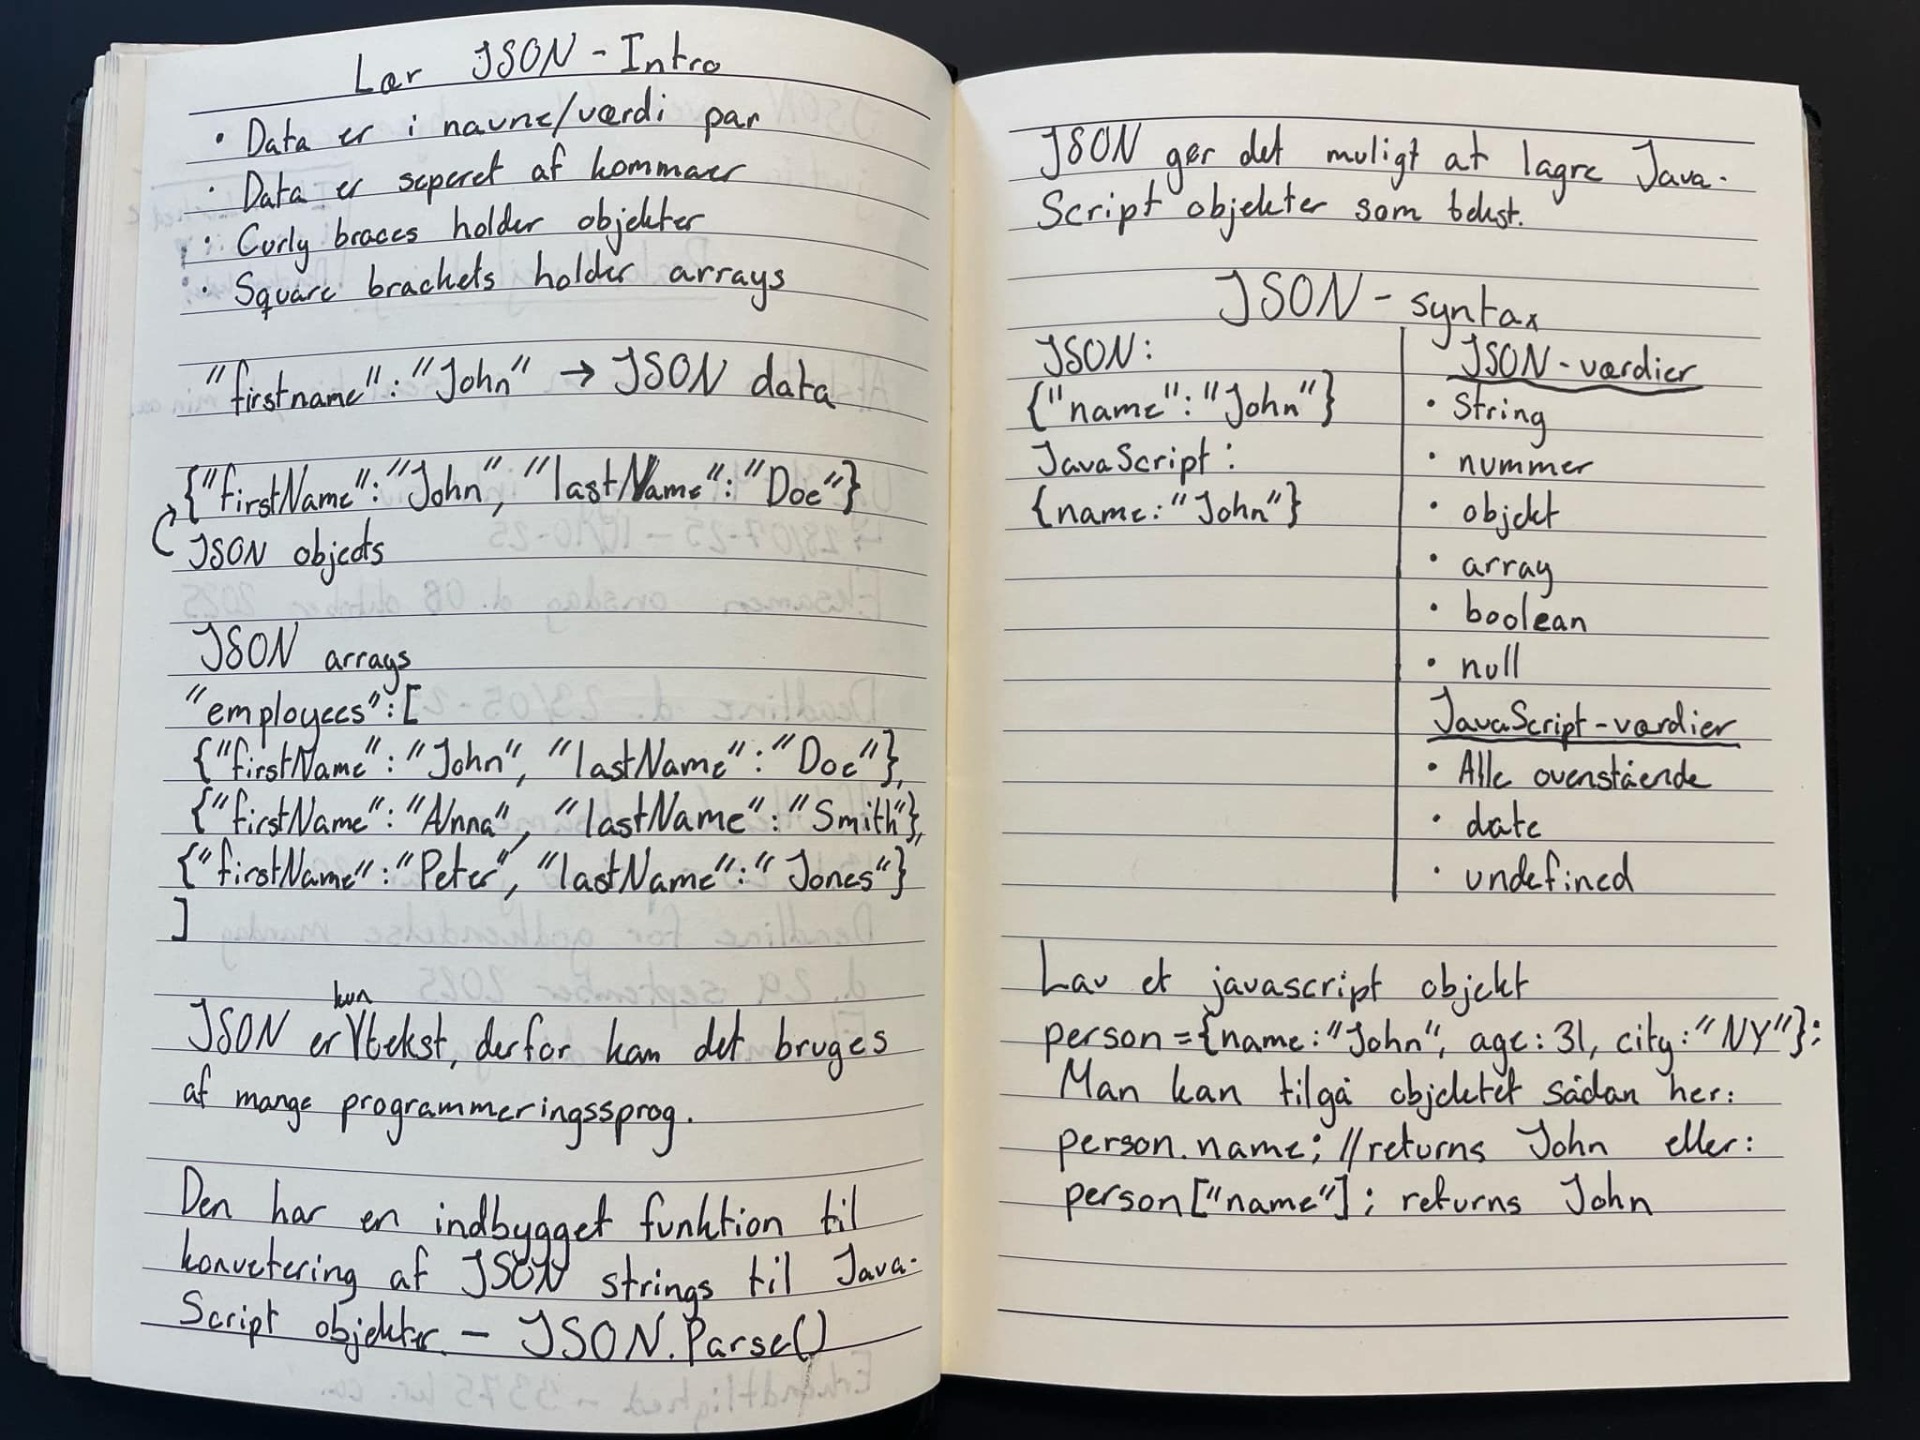 Lær JSON - Intro
• Data er i navne/værdi par
• Data er seperet af kommaer
• Curly braces holder objekter
• Square brackets holder arrays
"firstname":"John" → JSON data
{"firstName":"John", "lastName":"Doe"}
JSON objects
JSON arrays
"employees":[
{"firstName":"John", "lastName":"Doe"},
{"firstName":"Anna", "lastName":"Smith"},
{"firstName":"Peter", "lastName":"Jones"}
]
JSON er kun tekst, derfor kan det bruges
af mange programmeringssprog.
Den har en indbygget funktion til
konvetering af JSON strings til Java-
Script objekter - JSON.Parse()
JSON gør det muligt at lagre Java-
Script objekter som tekst.
JSON - syntax
JSON:
{"name":"John"}
JavaScript:
{name:"John"}
JSON-værdier
• String
• nummer
• objekt
• array
• boolean
• null
JavaScript-værdier
• Alle ovenstående
• date
• undefined
Lav et javascript objekt
person={name:"John", age:31, city:"NY"};
Man kan tilgå objektet sådan her:
person.name; //returns John eller:
person["name"]; returns John